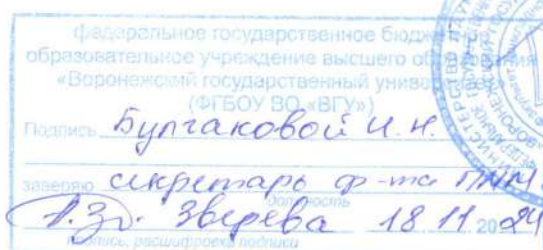 федеральное государственное бюджетное
образовательное учреждение высшего образования
«Воронежский государственный универс
(ФГБОУ ВО «ВГУ»)
Подпись Булгаковой И.Н.
заверяю секретарь ф-та ПММ
должность
Зверева 18 11 2024
подпись, расшифровка подписи